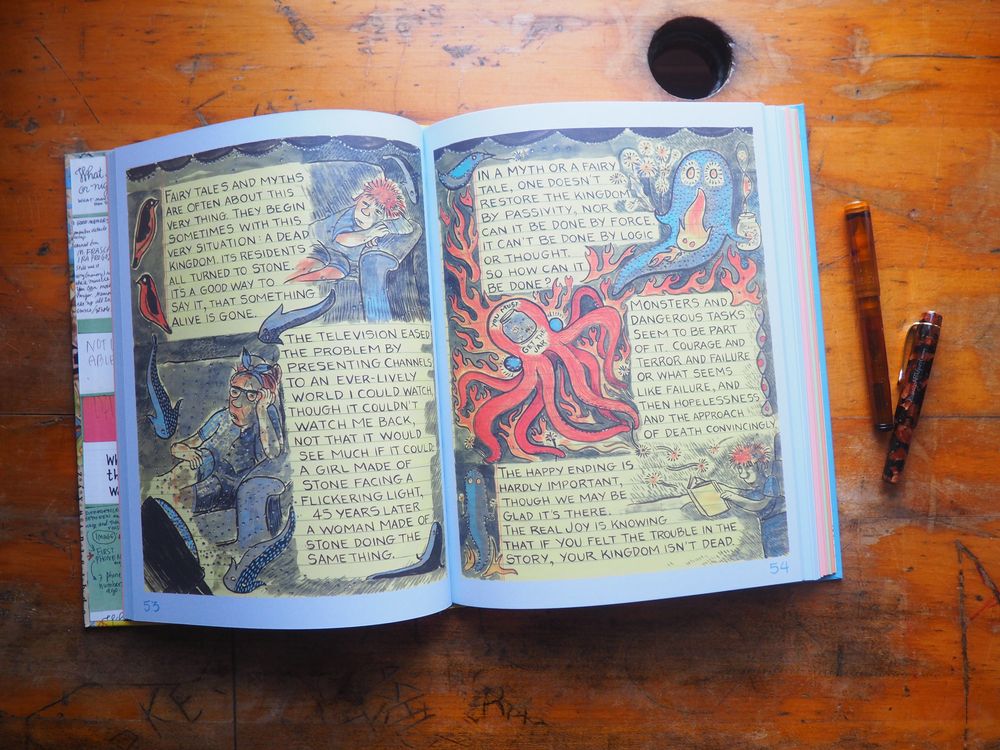 What
or n
WHAT
NOT
ABLE
FIRST
PHONE
FAIRY TALES AND MYTHS
ARE OFTEN ABOUT THIS
VERY THING. THEY BEGIN
SOMETIMES WITH THIS
VERY SITUATION: A DEAD
KINGDOM. ITS RESIDENTS
ALL TURNED TO STONE.
IT'S A GOOD WAY TO
SAY IT, THAT SOMETHING
ALIVE IS GONE.
THE TELEVISION EASED
THE PROBLEM BY
PRESENTING CHANNELS
TO AN EVER-LIVELY
WORLD I COULD WATCH
THOUGH IT COULDN'T
WATCH ME BACK,
NOT THAT IT WOULD
SEE MUCH IF IT COULD.
A GIRL MADE OF
STONE FACING A
FLICKERING LIGHT,
45 YEARS LATER
A WOMAN MADE OF
STONE DOING THE
SAME THING.
53
IN A MYTH OR A FAIRY
TALE, ONE DOESN'T
RESTORE THE KINGDOM
BY PASSIVITY, NOR
CAN IT BE DONE BY FORCE
IT CAN'T BE DONE BY LOGIC
OR THOUGHT.
SO HOW CAN IT
BE DONE?
YOU MUST
GET THE
JAR
MONSTERS AND
DANGEROUS TASKS
SEEM TO BE PART
OF IT. COURAGE AND
TERROR AND FAILURE
OR WHAT SEEMS
LIKE FAILURE, AND
THEN HOPELESSNESS
AND THE APPROACH
OF DEATH CONVINCINGLY
THE HAPPY ENDING IS
HARDLY IMPORTANT,
THOUGH WE MAY BE
GLAD IT'S THERE.
THE REAL JOY IS KNOWING
THAT IF YOU FELT THE TROUBLE IN THE
STORY, YOUR KINGDOM ISN'T DEAD.
54